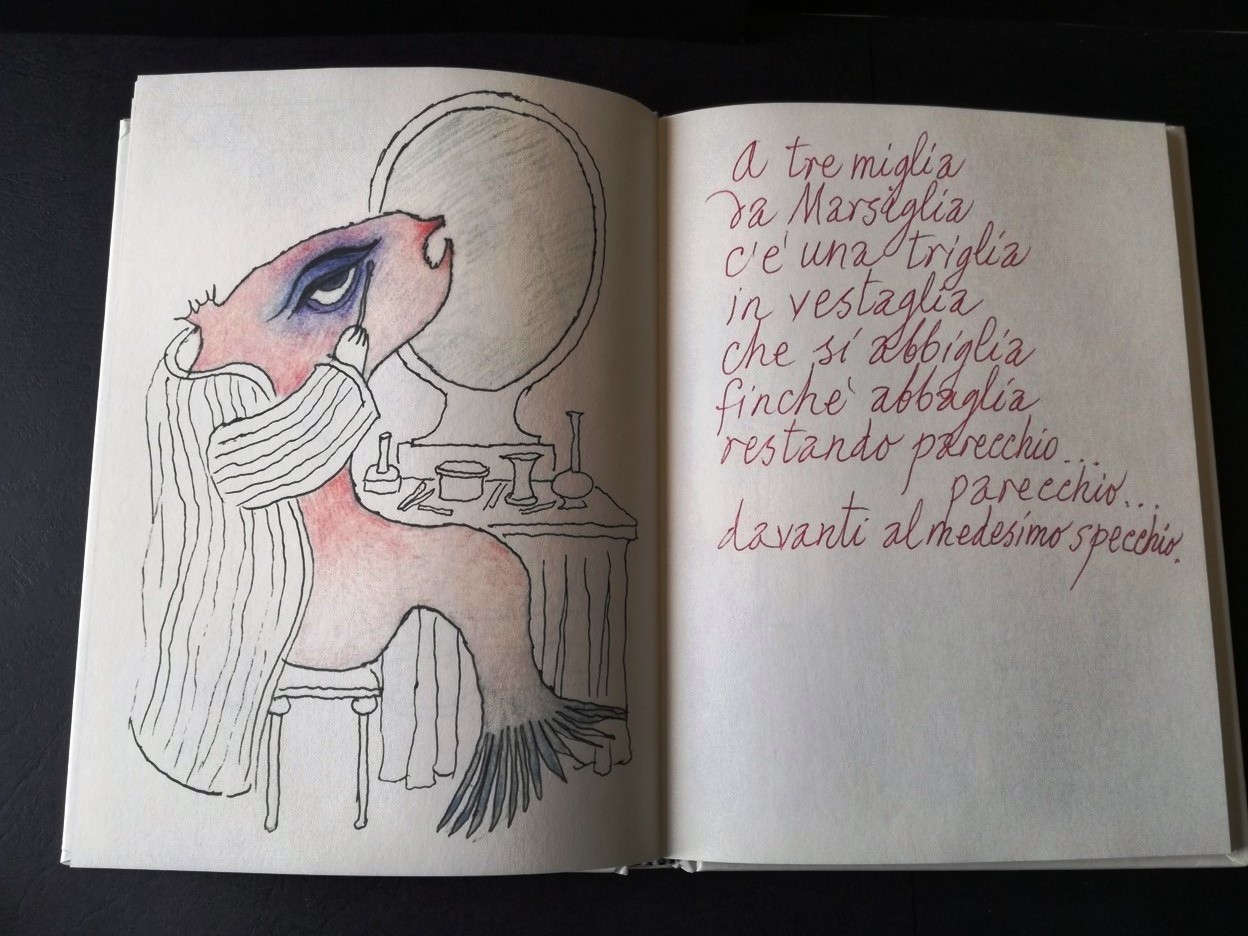 A tre miglia
da Marsiglia
c'è una triglia
in vestaglia
che si abbiglia
finchè abbaglia
restando parecchio...
parecchio...
davanti al medesimo specchio.